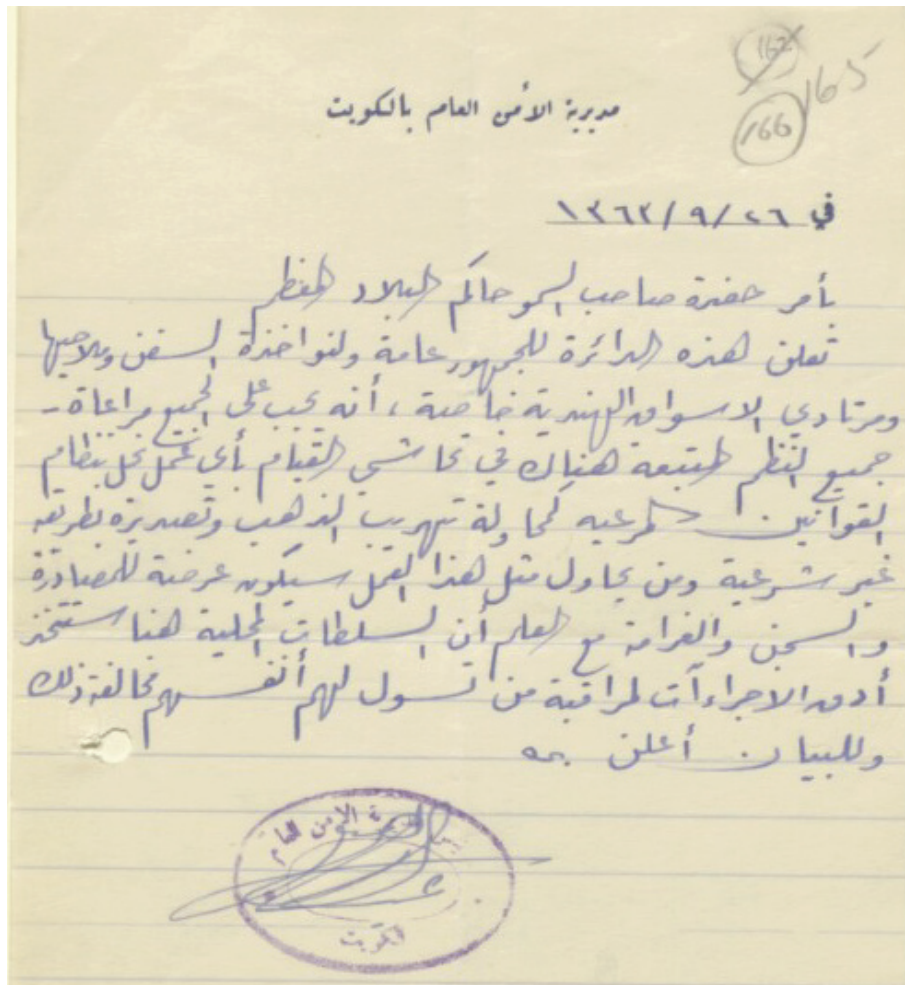 162
165
166
مديرية الأمن العام بالكويت
في ٢٦/٩/١٣٦٣
بأمر حضرة صاحب السمو حاكم البلاد المعظم
تعلن هذه الدائرة للجمهور عامة ولنواخذة السفن وملاحيها
ومرتادي الاسواق الهندية خاصة ، أنه يجب على الجميع مراعاة -
جميع النظم المتبعة هناك في تحاشي القيام بأي عمل يخل بنظام
القوانين المرعيه كمحاولة تهريب الذهب وتصديره بطريقه
غير شرعية ومن يحاول مثل هذا العمل سيكون عرضة للمصادرة
والسجن والغرامة مع العلم أن السلطات المحلية هنا ستتخذ
أدق الاجراءآت لمراقبة من تسول لهم أنفسهم مخالفة ذلك
وللبيان أعلن
مديرية الامن العام
الكويت